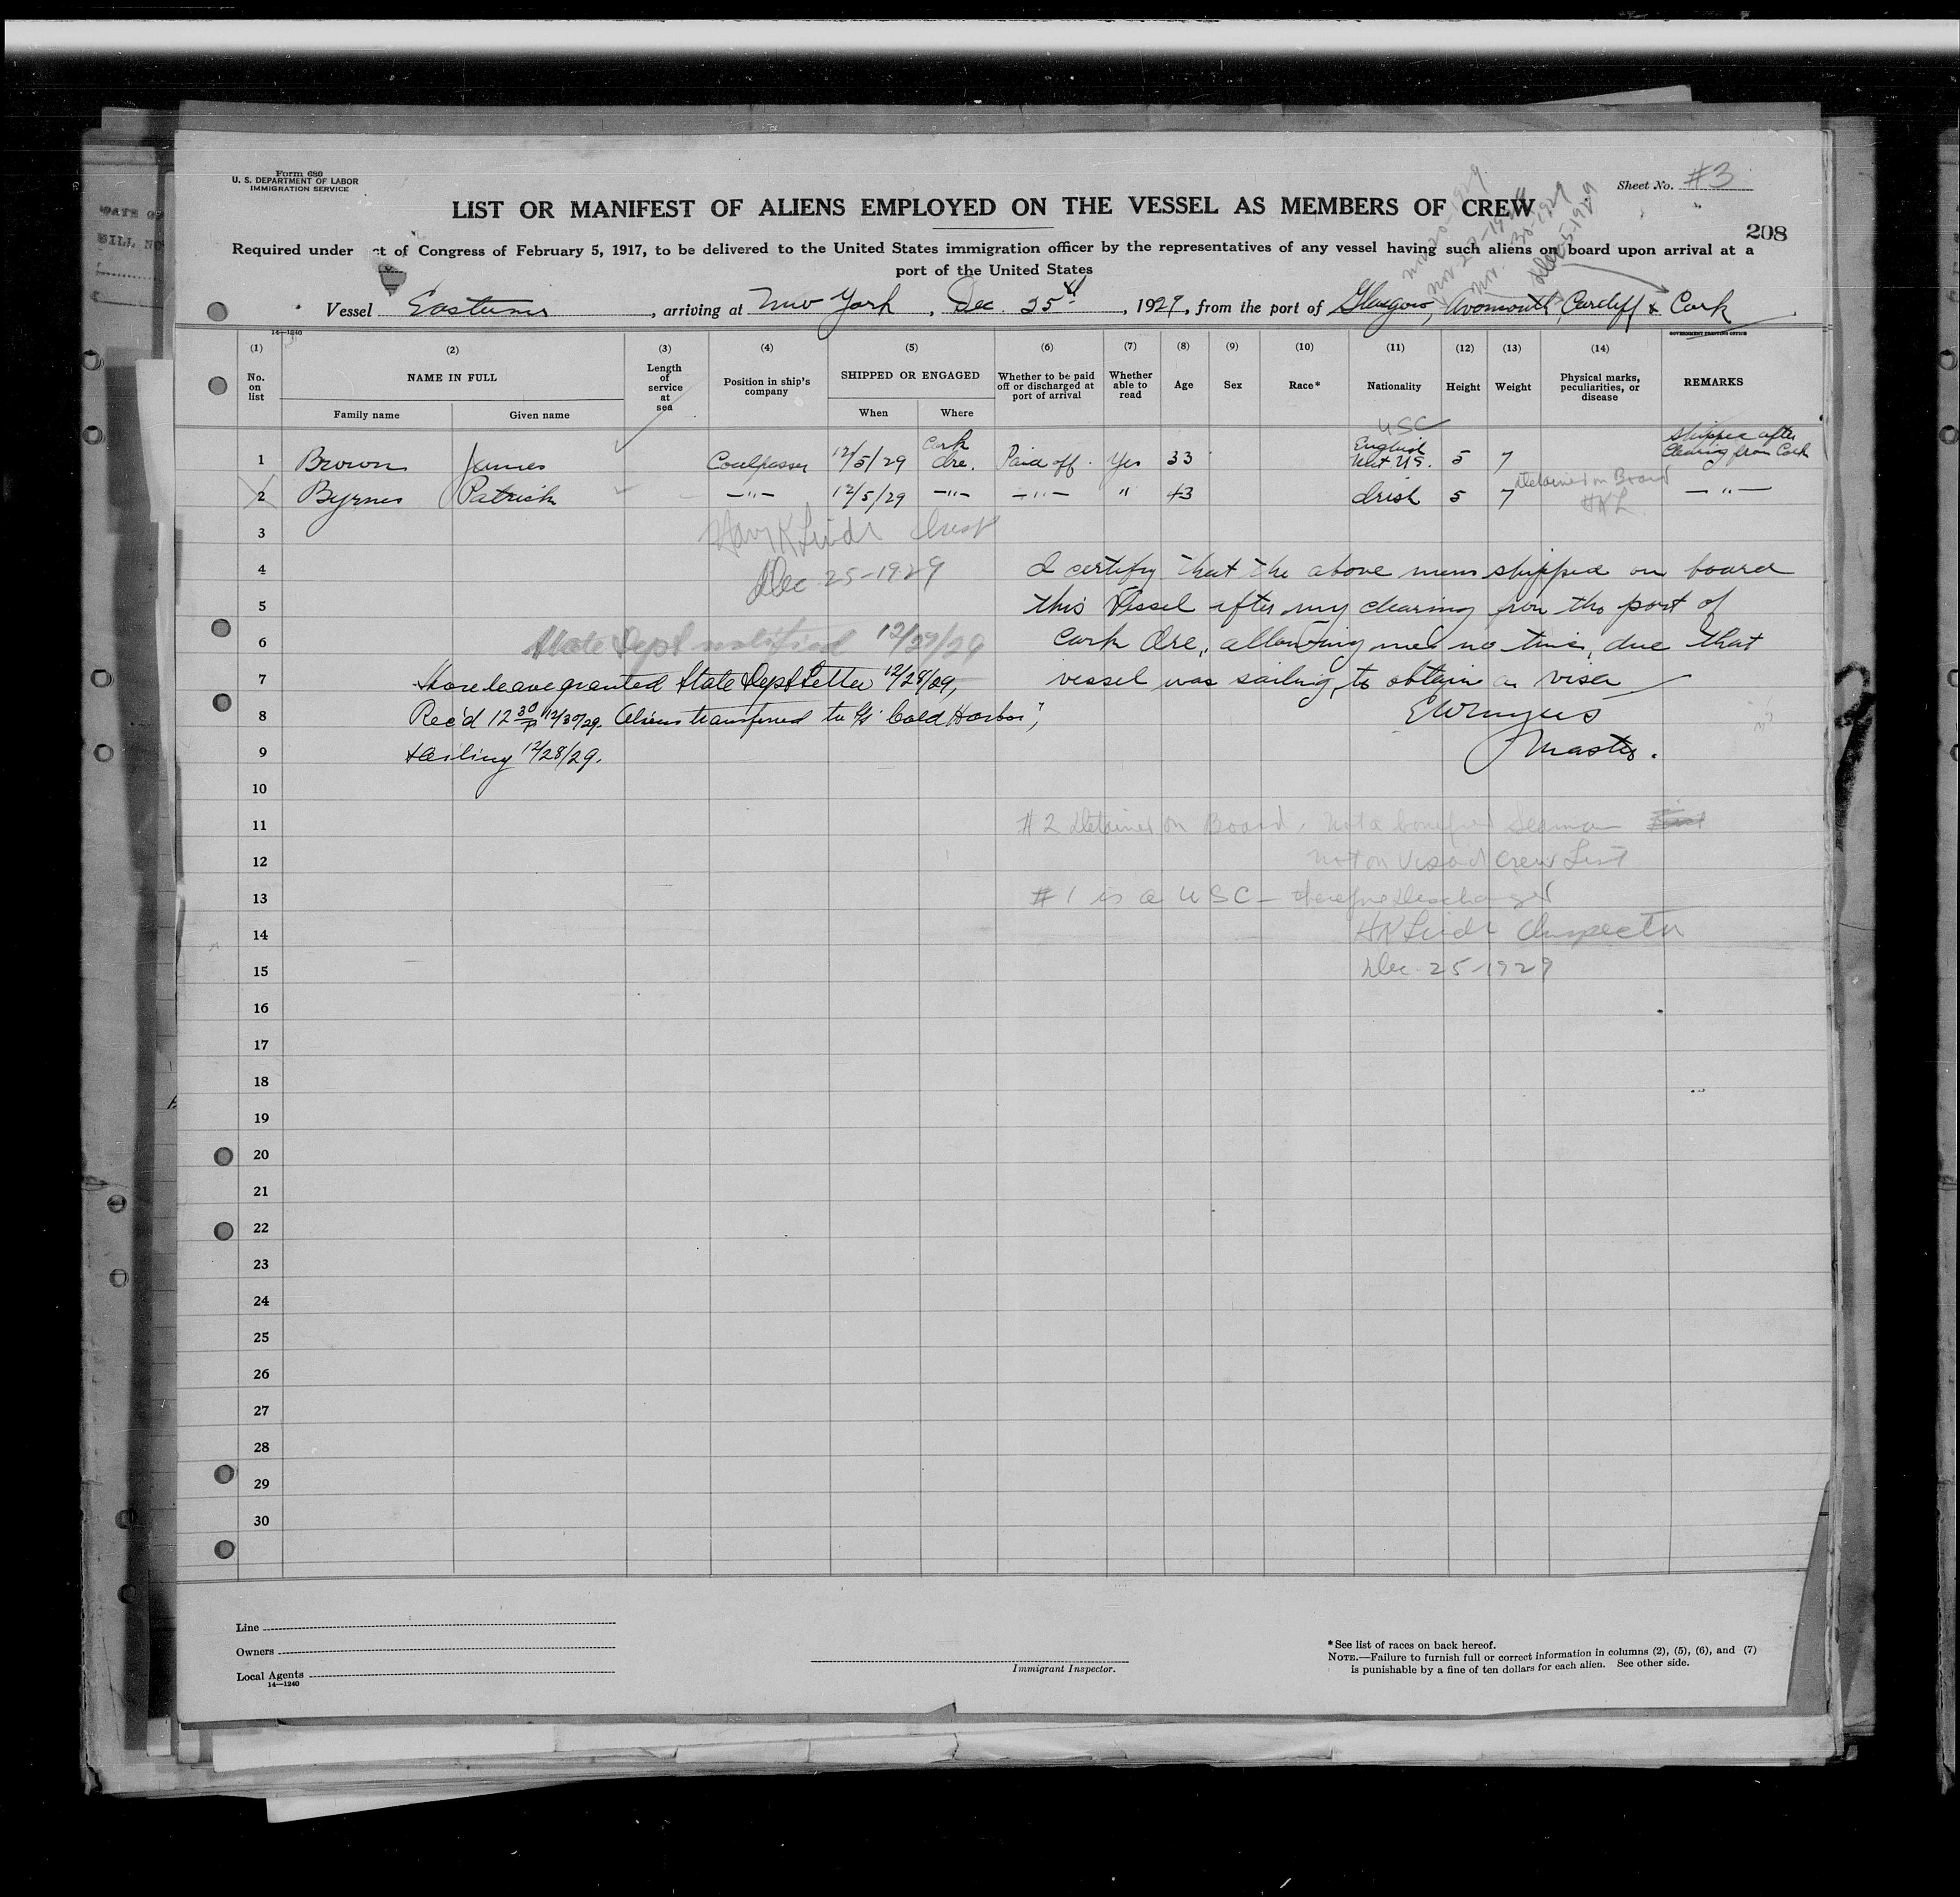 Form 680
U. S. DEPARTMENT OF LABOR
IMMIGRATION SERVICE
Sheet No. #3
LIST OR MANIFEST OF ALIENS EMPLOYED ON THE VESSEL AS MEMBERS OF CREW
208
Required under ct of Congress of February 5, 1917, to be delivered to the United States immigration officer by the representatives of any vessel having such aliens on board upon arrival at a
port of the United States
Nov 30-1929
Dec 5-1929
Vessel Easterner, arriving at New York, Dec. 25th, 1929, from the port of Glasgow, Avonmouth, Cardiff & Cork
14—1240
GOVERNMENT PRINTING OFFICE
(1) (2) (3) (4) (5) (6) (7) (8) (9) (10) (11) (12) (13) (14)
No. on list NAME IN FULL Family name Given name Length of service at sea Position in ship's company SHIPPED OR ENGAGED When Where Whether to be paid off or discharged at port of arrival Whether able to read Age Sex Race* Nationality Height Weight Physical marks, peculiarities, or disease REMARKS
USC
1 Brown James Coalpasser 12/5/29 Cork Ire. Paid off. Yes 33 English Nat US. 5 7 Shipped after Clearing from Cork
2 Byrnes Patrick —"— 12/5/29 —"— —"— " 43 Irish 5 7 Detained on Board HKL —"—
3
Dec 25-1929
4 I certify that the above men shipped on board
5 this Vessel after my clearing from the port of
State Dept notified 12/27/29
6 Cork Ire., allowing me no time, due that
7 Shore leave granted State Dept Letter 12/28/29, vessel was sailing, to obtain a visa
8 Rec'd 12 30 P 12/30/29. Aliens transferred to SS "Cold Harbor",
9 Sailing 12/28/29. Master.
10
11 #2 Detained on Board. Not a bonefied Seaman
12 Not on Visaed Crew List
13 #1 is a USC - therefore Discharged
14 HK Inspector
15 Dec 25-1929
16
17
18
19
20
21
22
23
24
25
26
27
28
29
30
Line
Owners
Local Agents
14—1240
Immigrant Inspector.
*See list of races on back hereof.
NOTE.—Failure to furnish full or correct information in columns (2), (5), (6), and (7)
is punishable by a fine of ten dollars for each alien. See other side.